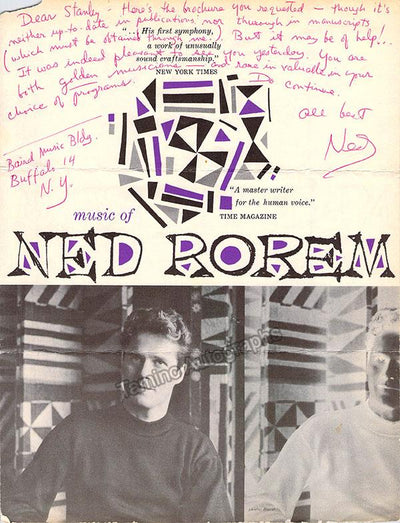 Dear Stanley - Here's the brochure you requested — though it's
neither up-to-date in publications nor thorough in manuscripts
(which must be obtained through me). But it may be of help!...
It was indeed pleasant to see you yesterday. You are
both golden musicians — and rare in valuable in your
choice of programs. Do
continue.
All best
Ned
Baird Music Bldg.
Buffalo 14
N.Y.
"... His first symphony,
a work of unusually
sound craftsmanship."
NEW YORK TIMES
"A master writer
for the human voice."
TIME MAGAZINE
music of
NED ROREM
Tamino Autographs